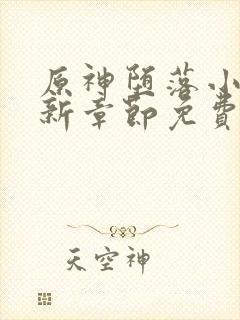 原神堕落小
新章節免費
天空神